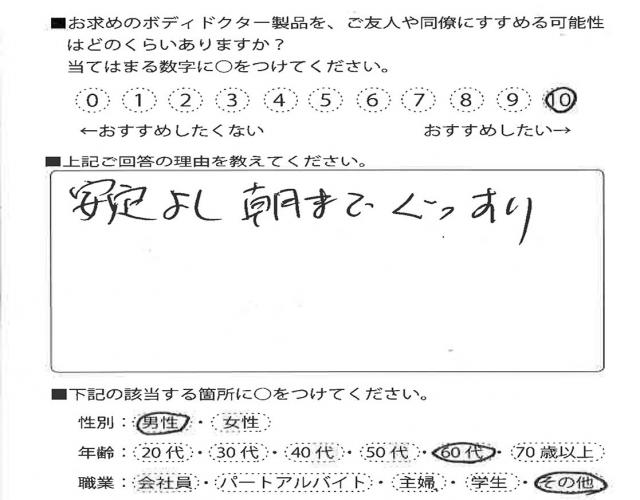 ■お求めのボディドクター製品を、ご友人や同僚にすすめる可能性
はどのくらいありますか?
当てはまる数字に○をつけてください。
0 1 2 3 4 5 6 7 8 9 10
←おすすめしたくない おすすめしたい→
■上記ご回答の理由を教えてください。
安定よし 朝まで ぐっすり
■下記の該当する箇所に○をつけてください。
性別:男性・女性
年齢:20代・30代・40代・50代・60代・70歳以上
職業:会社員・パートアルバイト・主婦・学生・その他